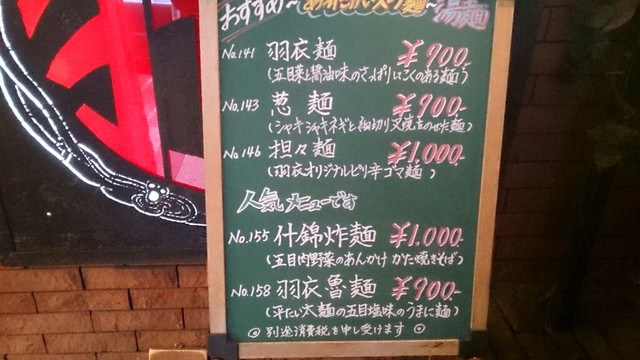 おすすめ〜あったかいスープ麺〜湯麺
No.141 羽衣麺 ¥900-
(五目入り醤油味のさっぱりしこくのある麺)
No.143 葱麺 ¥900-
(シャキシャキネギと細切り叉焼をのせた麺)
No.146 担々麺 ¥1.000-
(羽衣オリジナルピリ辛ゴマ麺)
人気メニューです
No.155 什錦炸麺 ¥1.000-
(五目肉野菜のあんかけ かた焼きそば)
No.158 羽衣魯麺 ¥900-
(平たい太麺の五目塩味のうまに麺)
◎別途消費税を申し受けます◎